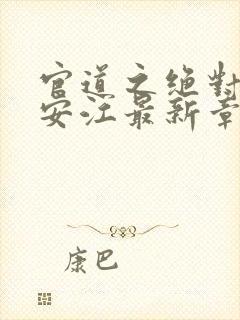 官道之绝对
安江最新章
康巴